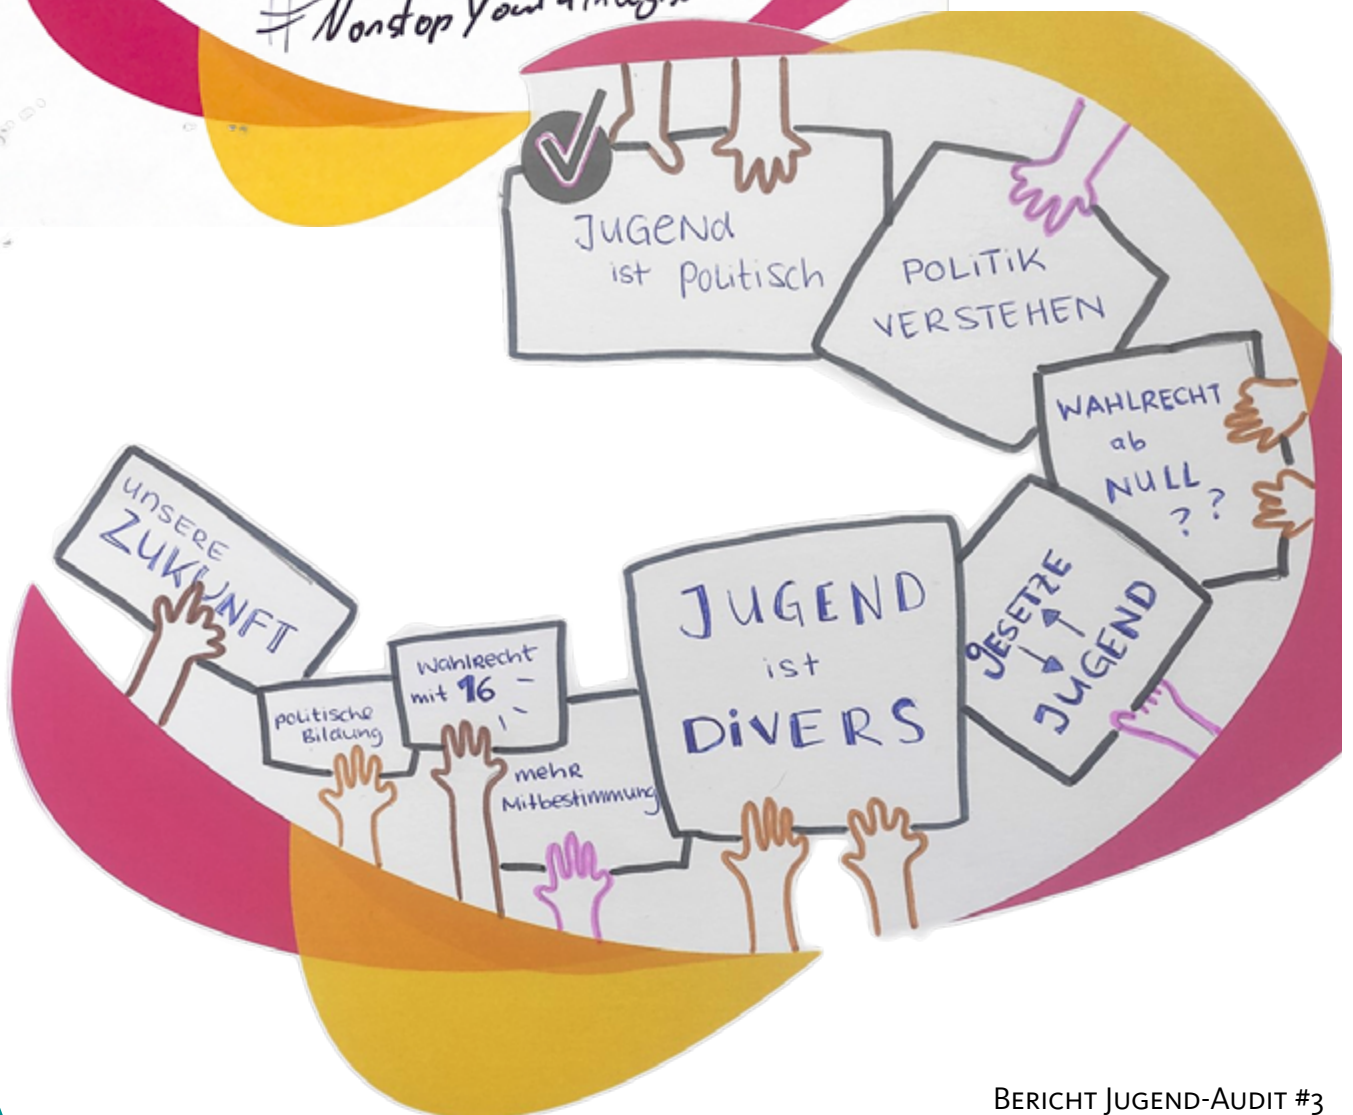 #Nonstop
JUGENd
ist politisch
POLiTiK
VERSTEHEN
WAHLRECHT
ab
NULL
? ?
GESETZE
JUGEND
JUGEND
ist
DiVERS
mehR
Mitbestimmung
WahlRecht
mit 16
politische
Bildung
UNSERE
ZUKUNFT
BERICHT JUGEND-AUDIT #3